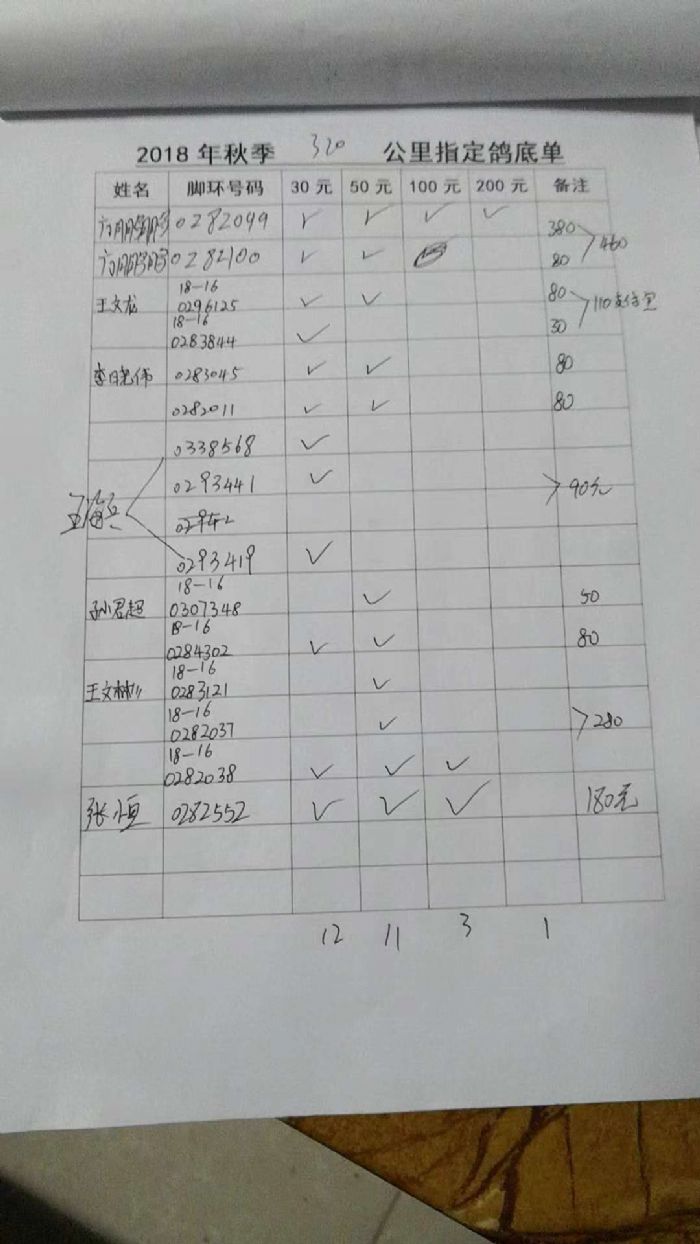 2018 年秋季 320 公里指定鸽底单
姓名 脚环号码 30 元 50 元 100 元 200 元 备注
0282099 ✓ ✓ ✓ ✓ 380
460
0282100 ✓ ✓ 80
18-16
王文龙 0296125 ✓ ✓ 80
110
18-16
0283844 ✓ 30
李晓伟 0283045 ✓ ✓ 80
0282011 ✓ ✓ 80
0338568 ✓
0293441 ✓ 90元
0293419 ✓
18-16
孙君超 0307348 ✓ 50
18-16
0284302 ✓ ✓ 80
18-16
王文彬 0283121 ✓
18-16
0282037 ✓ 280
18-16
0282038 ✓ ✓ ✓
张恒 0282552 ✓ ✓ ✓ 180元
12 11 3 1